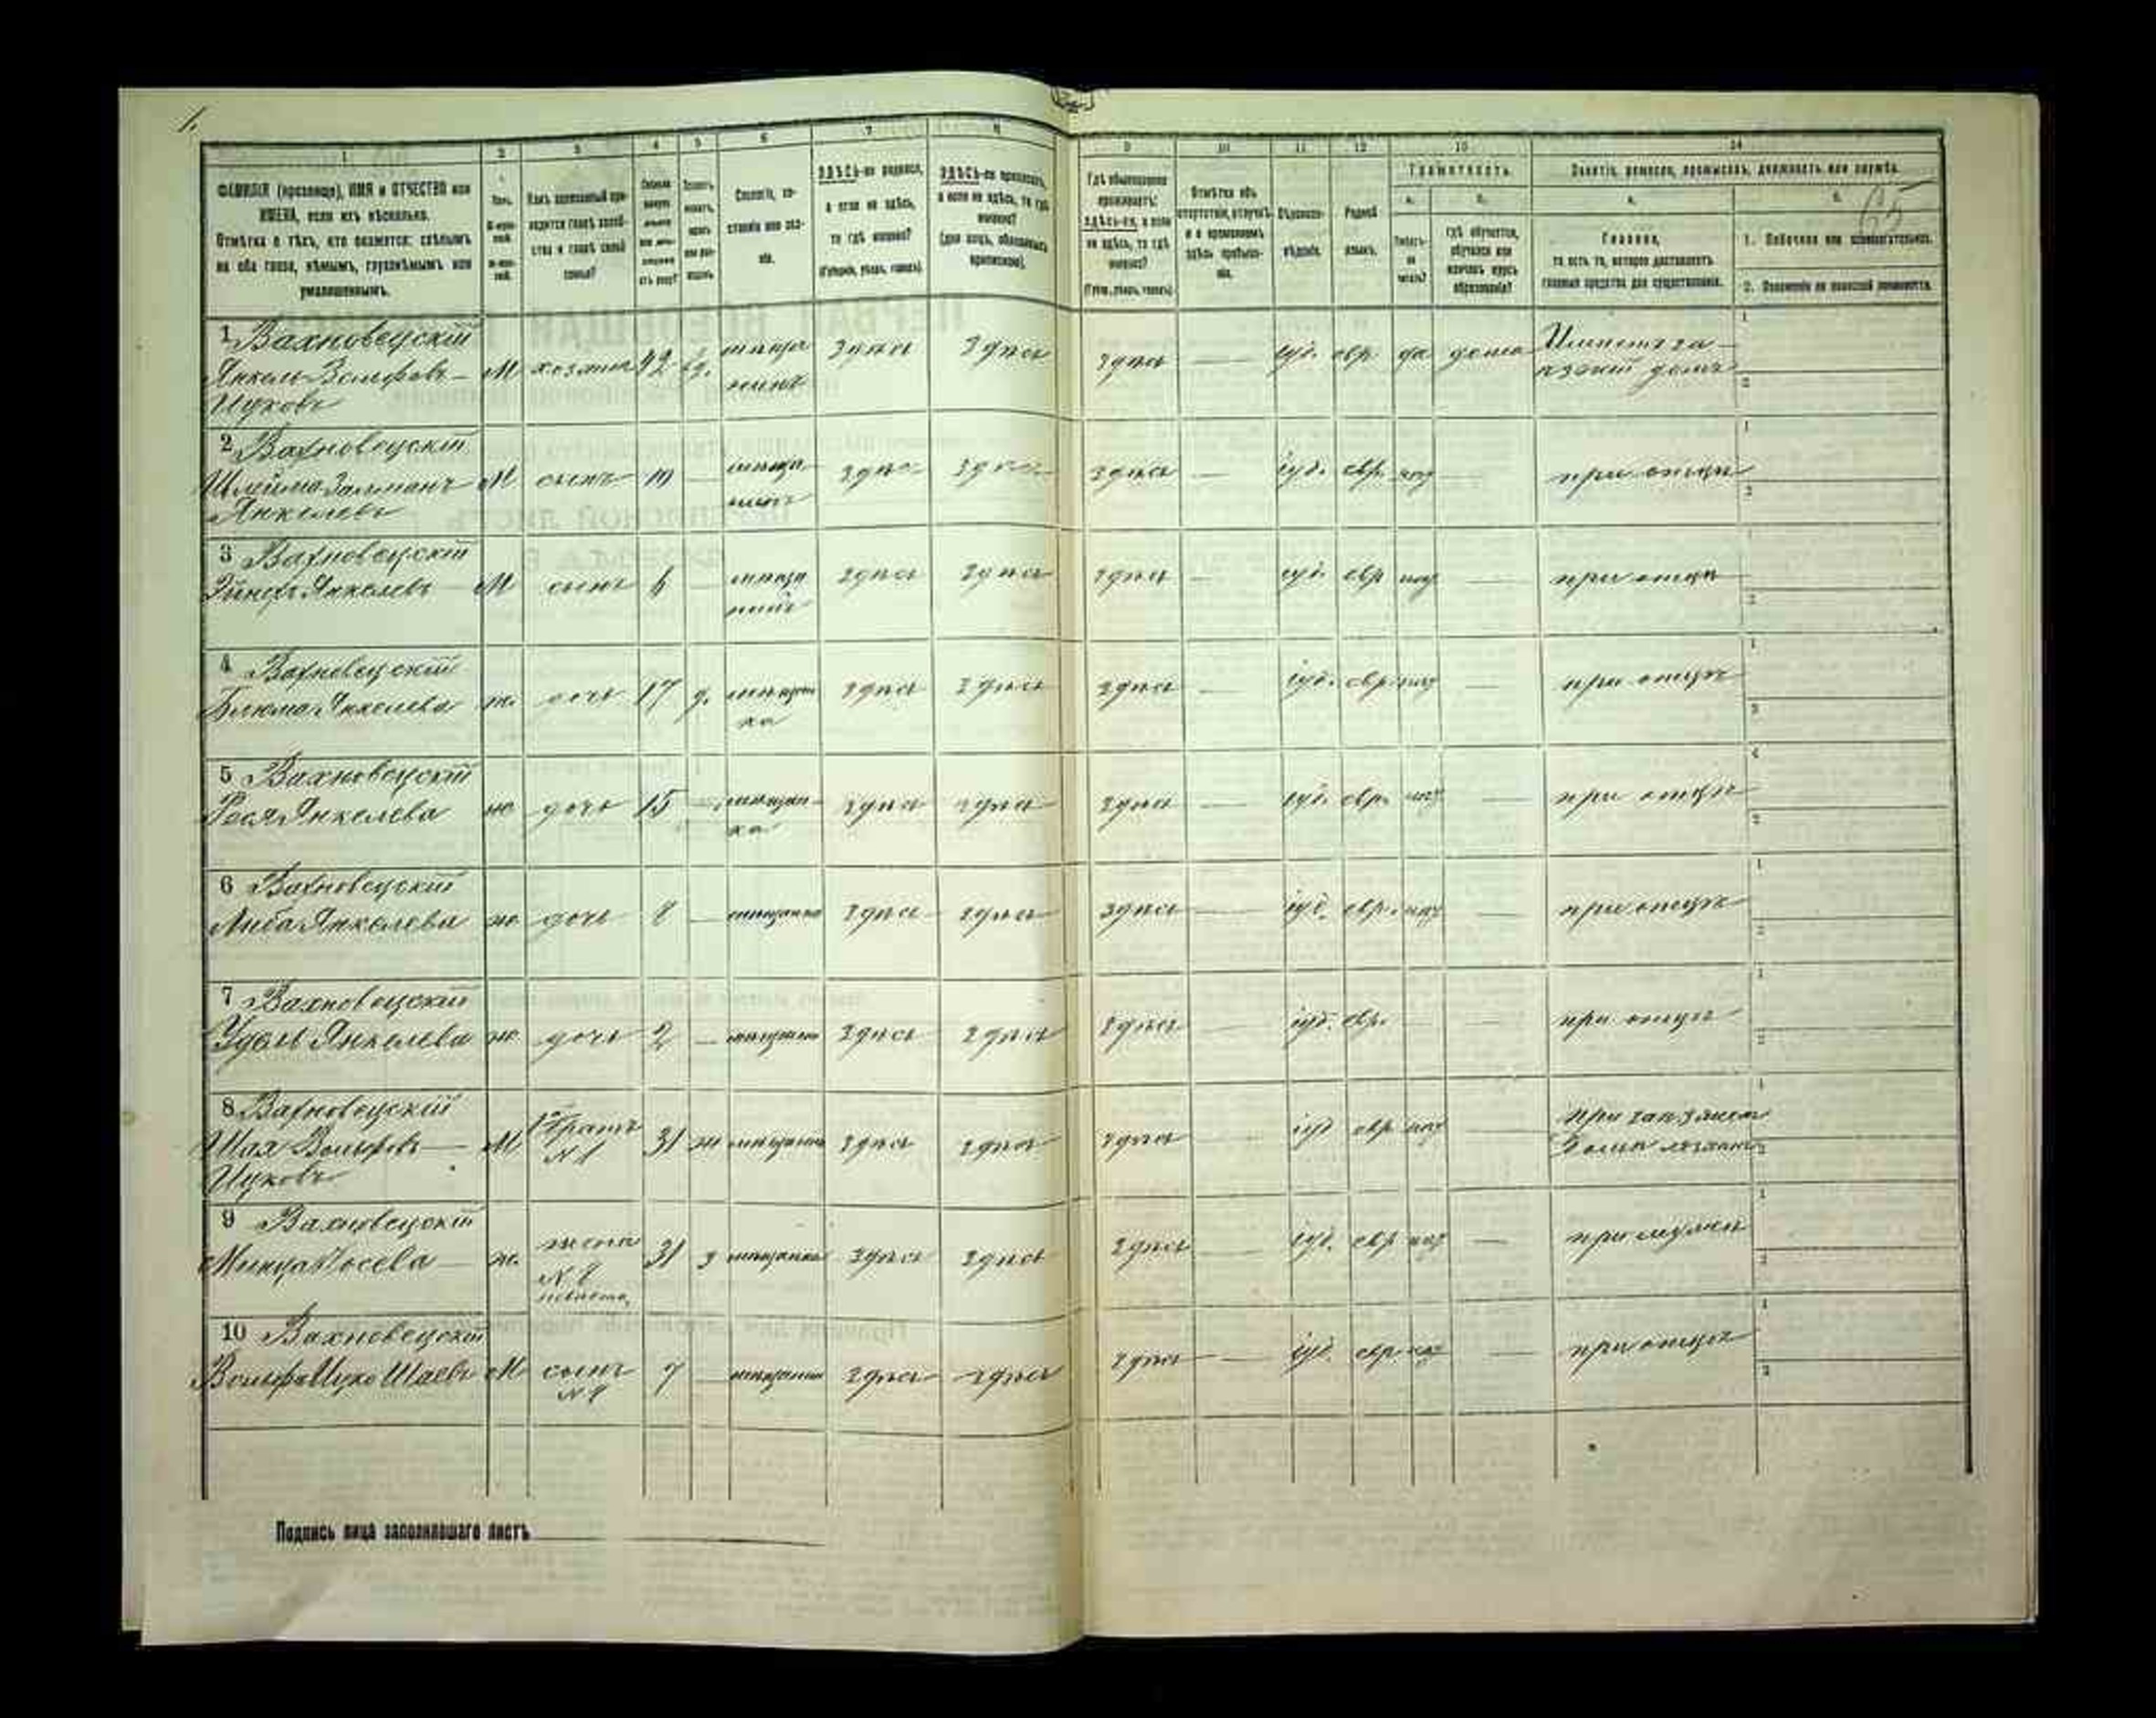 1.
1
2
3
4
5
6
7
8
9
10
11
12
13
14
65
ФАМИЛІЯ (прозвище), ИМЯ и ОТЧЕСТВО или
ИМЕНА, если ихъ нѣсколько.
Отмѣтка о тѣхъ, кто окажется: слѣпымъ
на оба глаза, нѣмымъ, глухонѣмымъ или
умалишеннымъ.
Какъ записанный при-
ходится главѣ хозяй-
ства и главѣ своей
семьи?
Сословіе, со-
стояніе или зва-
ніе.
ЗДѢСЬ-ли родился,
а если не здѣсь,
то гдѣ именно?
(Губернія, уѣздъ, городъ).
ЗДѢСЬ-ли приписанъ,
а если не здѣсь, то гдѣ
именно?
(для лицъ, обязанныхъ
припискою).
Гдѣ обыкновенно
проживаетъ:
здѣсь-ли, а если
не здѣсь, то гдѣ
именно?
(Губ., уѣздъ, городъ).
Отмѣтка объ
отсутствіи, отлучкѣ
и о временномъ
здѣсь пребыва-
ніи.
Вѣроиспо-
вѣданіе.
Родной
языкъ.
Грамотность.
а.
б.
Умѣетъ-
ли
читать?
Гдѣ обучается,
обучался или
кончилъ курсъ
образованія?
Занятіе, ремесло, промыселъ, должность или служба.
а.
б.
Главное,
то есть то, которое доставляетъ
главныя средства для существованія.
1. Побочное или вспомогательное.
2. Положеніе по воинской повинности.
1 Вахновецскій
Янкель Вольфовъ-
Ицковъ
М хозяинъ 42 мѣща
нинъ здѣсь здѣсь здѣсь — іуд. евр да дома
2 Вахновецскій
Шлёйма Залманъ
Янкелевъ
М сынъ 10 — мѣща
нинъ здѣсь здѣсь здѣсь — іуд. евр. нѣт — при отцѣ
3 Вахновецскій
Янкелевъ
М сынъ 6 — мѣща
нинъ здѣсь здѣсь здѣсь — іуд. евр нѣт — при отцѣ
4 Вахновецскій
Блюма Янкелева
ж. дочь 17 д. мѣщан
ка здѣсь здѣсь здѣсь — іуд. евр. нѣт — при отцѣ
5 Вахновецскій
Янкелева
ж дочь 15 — мѣщан-
ка здѣсь здѣсь здѣсь — іуд. евр. нѣт — при отцѣ
6 Вахновецскій
Либа Янкелева
ж. дочь 8 — мѣщанка здѣсь здѣсь здѣсь — іуд. евр. нѣт — при отцѣ
7 Вахновецскій
Удель Янкелева
ж дочь 2 — мѣщанка здѣсь здѣсь здѣсь — іуд. евр. — при отцѣ
8 Вахновецскій
Шая Вольфовъ
Ицковъ
М братъ
N 1 31 ж мѣщанинъ здѣсь здѣсь здѣсь — іуд евр нѣт —
9 Вахновецскій
Минца Іосева
ж. жена
N 8
невѣстка
31 з мѣщанка здѣсь здѣсь здѣсь — іуд. евр нѣт — при мужѣ
10 Вахновецскій
Вольфъ Ицко Шаевъ
М сынъ
мѣщанинъ здѣсь здѣсь здѣсь — іуд. евр нѣт — при отцѣ
Подпись лица заполнявшаго листъ